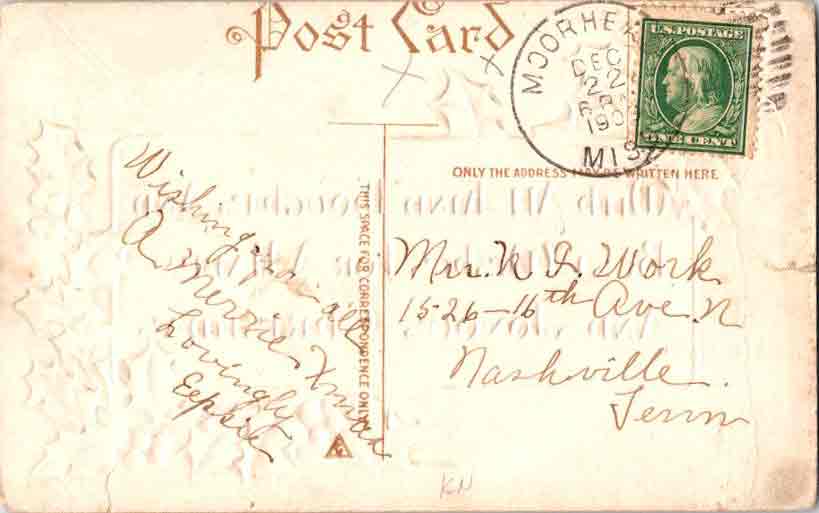 Post Card
MOORHE
DEC
2
190
MIS
U.S. POSTAGE
ONE CENT
ONLY THE ADDRESS MAY BE WRITTEN HERE
THIS SPACE FOR CORRESPONDENCE ONLY
Wishing you all
A Merrie Xmas
Lovingly
Mr. N. I. Work
1526-16th Ave. N
Nashville.
Tenn
KN